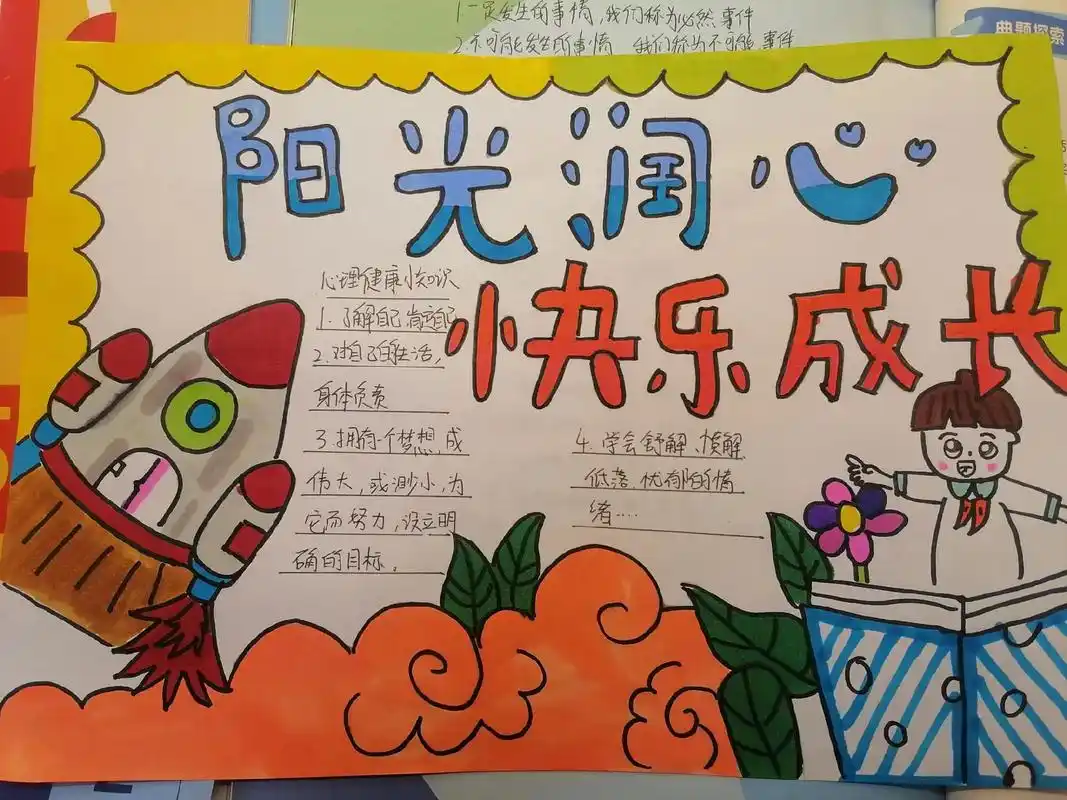 1.一定发生的事情,我们称为必然事件
2.不可能发生的事情 我们称为不可能事件
典题探索
阳光润心
快乐成长
心理健康小知识
1.了解自己,肯定自己
2.对自己的生活,
身体负责
3.拥有一个梦想,成
伟大,或渺小,为
它而努力,设立明
确的目标。
4.学会舒解、
低落、忧郁的情
绪……